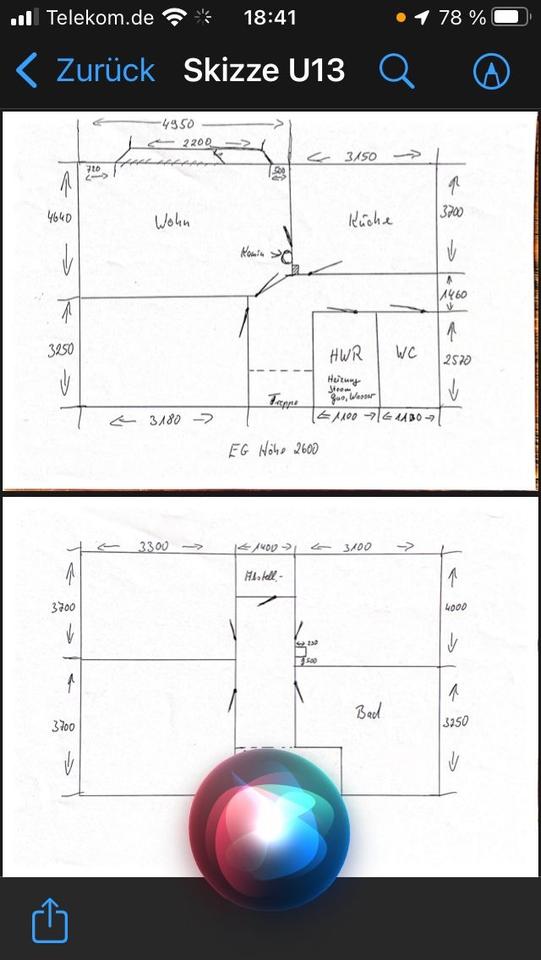 Telekom.de 18:41 78 %
Zurück Skizze U13
4950
2200
3150
720
500
4640
Wohn
Küche
3700
Kamin
1460
3250
HWR
WC
2570
Heizung
Strom
Gas, Wasser
Treppe
3180
1100
1130
EG Höhe 2600
3300
1400
3100
Abstell-
3700
4000
500
3700
Bad
3250